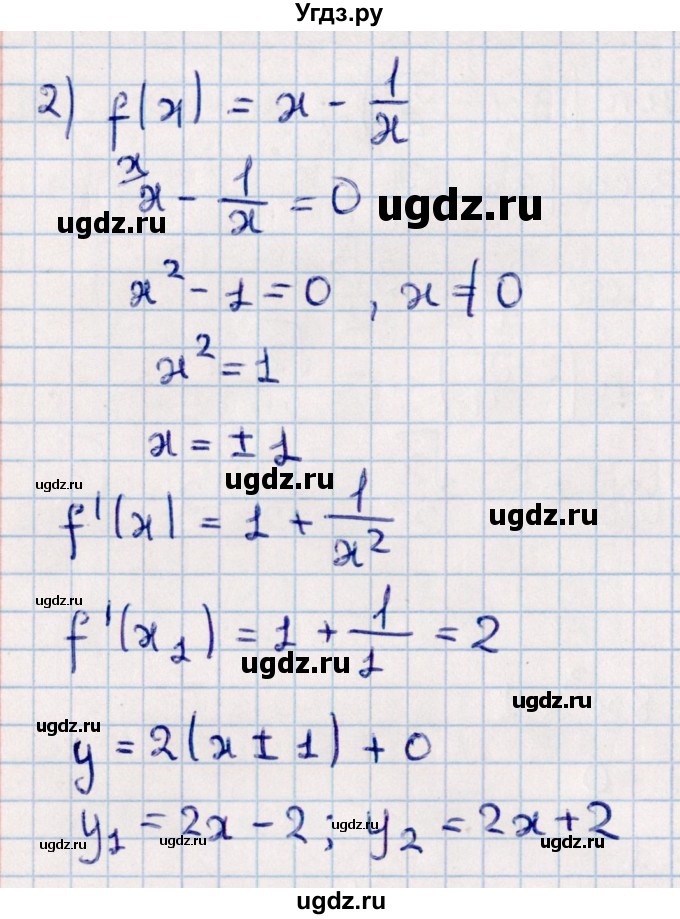 Угдз.ру
2) f(x) = x - 1/x
x
x - 1/x = 0 ugdz.ru
ugdz.ru
x² - 1 = 0 , x ≠ 0
x² = 1
x = ± 1
ugdz.ru ugdz.ru
f'(x) = 1 + 1/x² ugdz.ru
ugdz.ru
f'(x₁) = 1 + 1/1 = 2
ugdz.ru
ugdz.ru
ugdz.ru
y = 2(x ± 1) + 0
y₁ = 2x - 2; y₂ = 2x + 2
ugdz.ru ugdz.ru ugdz.ru
ugdz.ru